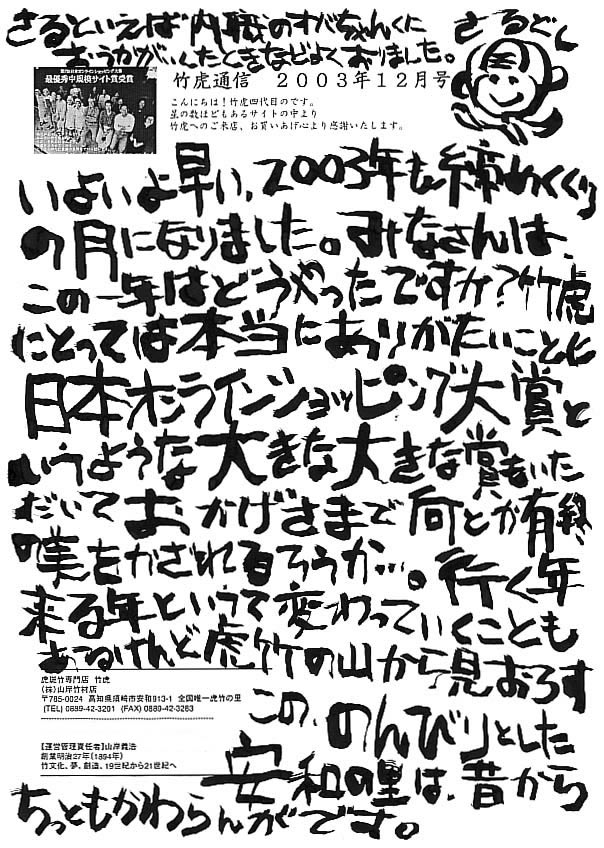 さるといえば内職のオバちゃんくに
おうかがいしたときなどよくおりました。
さるどし
最優秀中規模サイト賞受賞
竹虎通信 2003年12月号
こんにちは！竹虎四代目のです。
星の数ほどもあるサイトの中より
竹虎へのご来店、お買いあげ心より感謝いたします。
いよいよ早い、2003年も締めくくり
の月になりました。みなさんは、
この一年はどうやったですか？竹虎
にとっては本当にありがたいことに
日本オンラインショッピング大賞と
いうような大きな大きな賞をいた
だいておかげさまで何とか有終
の美をかざれるろうか…。行く年
来る年というて変わっていくことも
あるけんど虎竹の山から見おろす
虎斑竹専門店 竹虎
(株)山岸竹材店
〒785-0024 高知県須崎市安和913-1 全国唯一虎竹の里
(TEL) 0889-42-3201 (FAX) 0889-42-3283
この、のんびりとした
【運営管理責任者】山岸義浩
創業明治27年(1894年)
竹文化、夢、創造、19世紀から21世紀へ
安和の里は、昔から
ちっともかわらんがです。